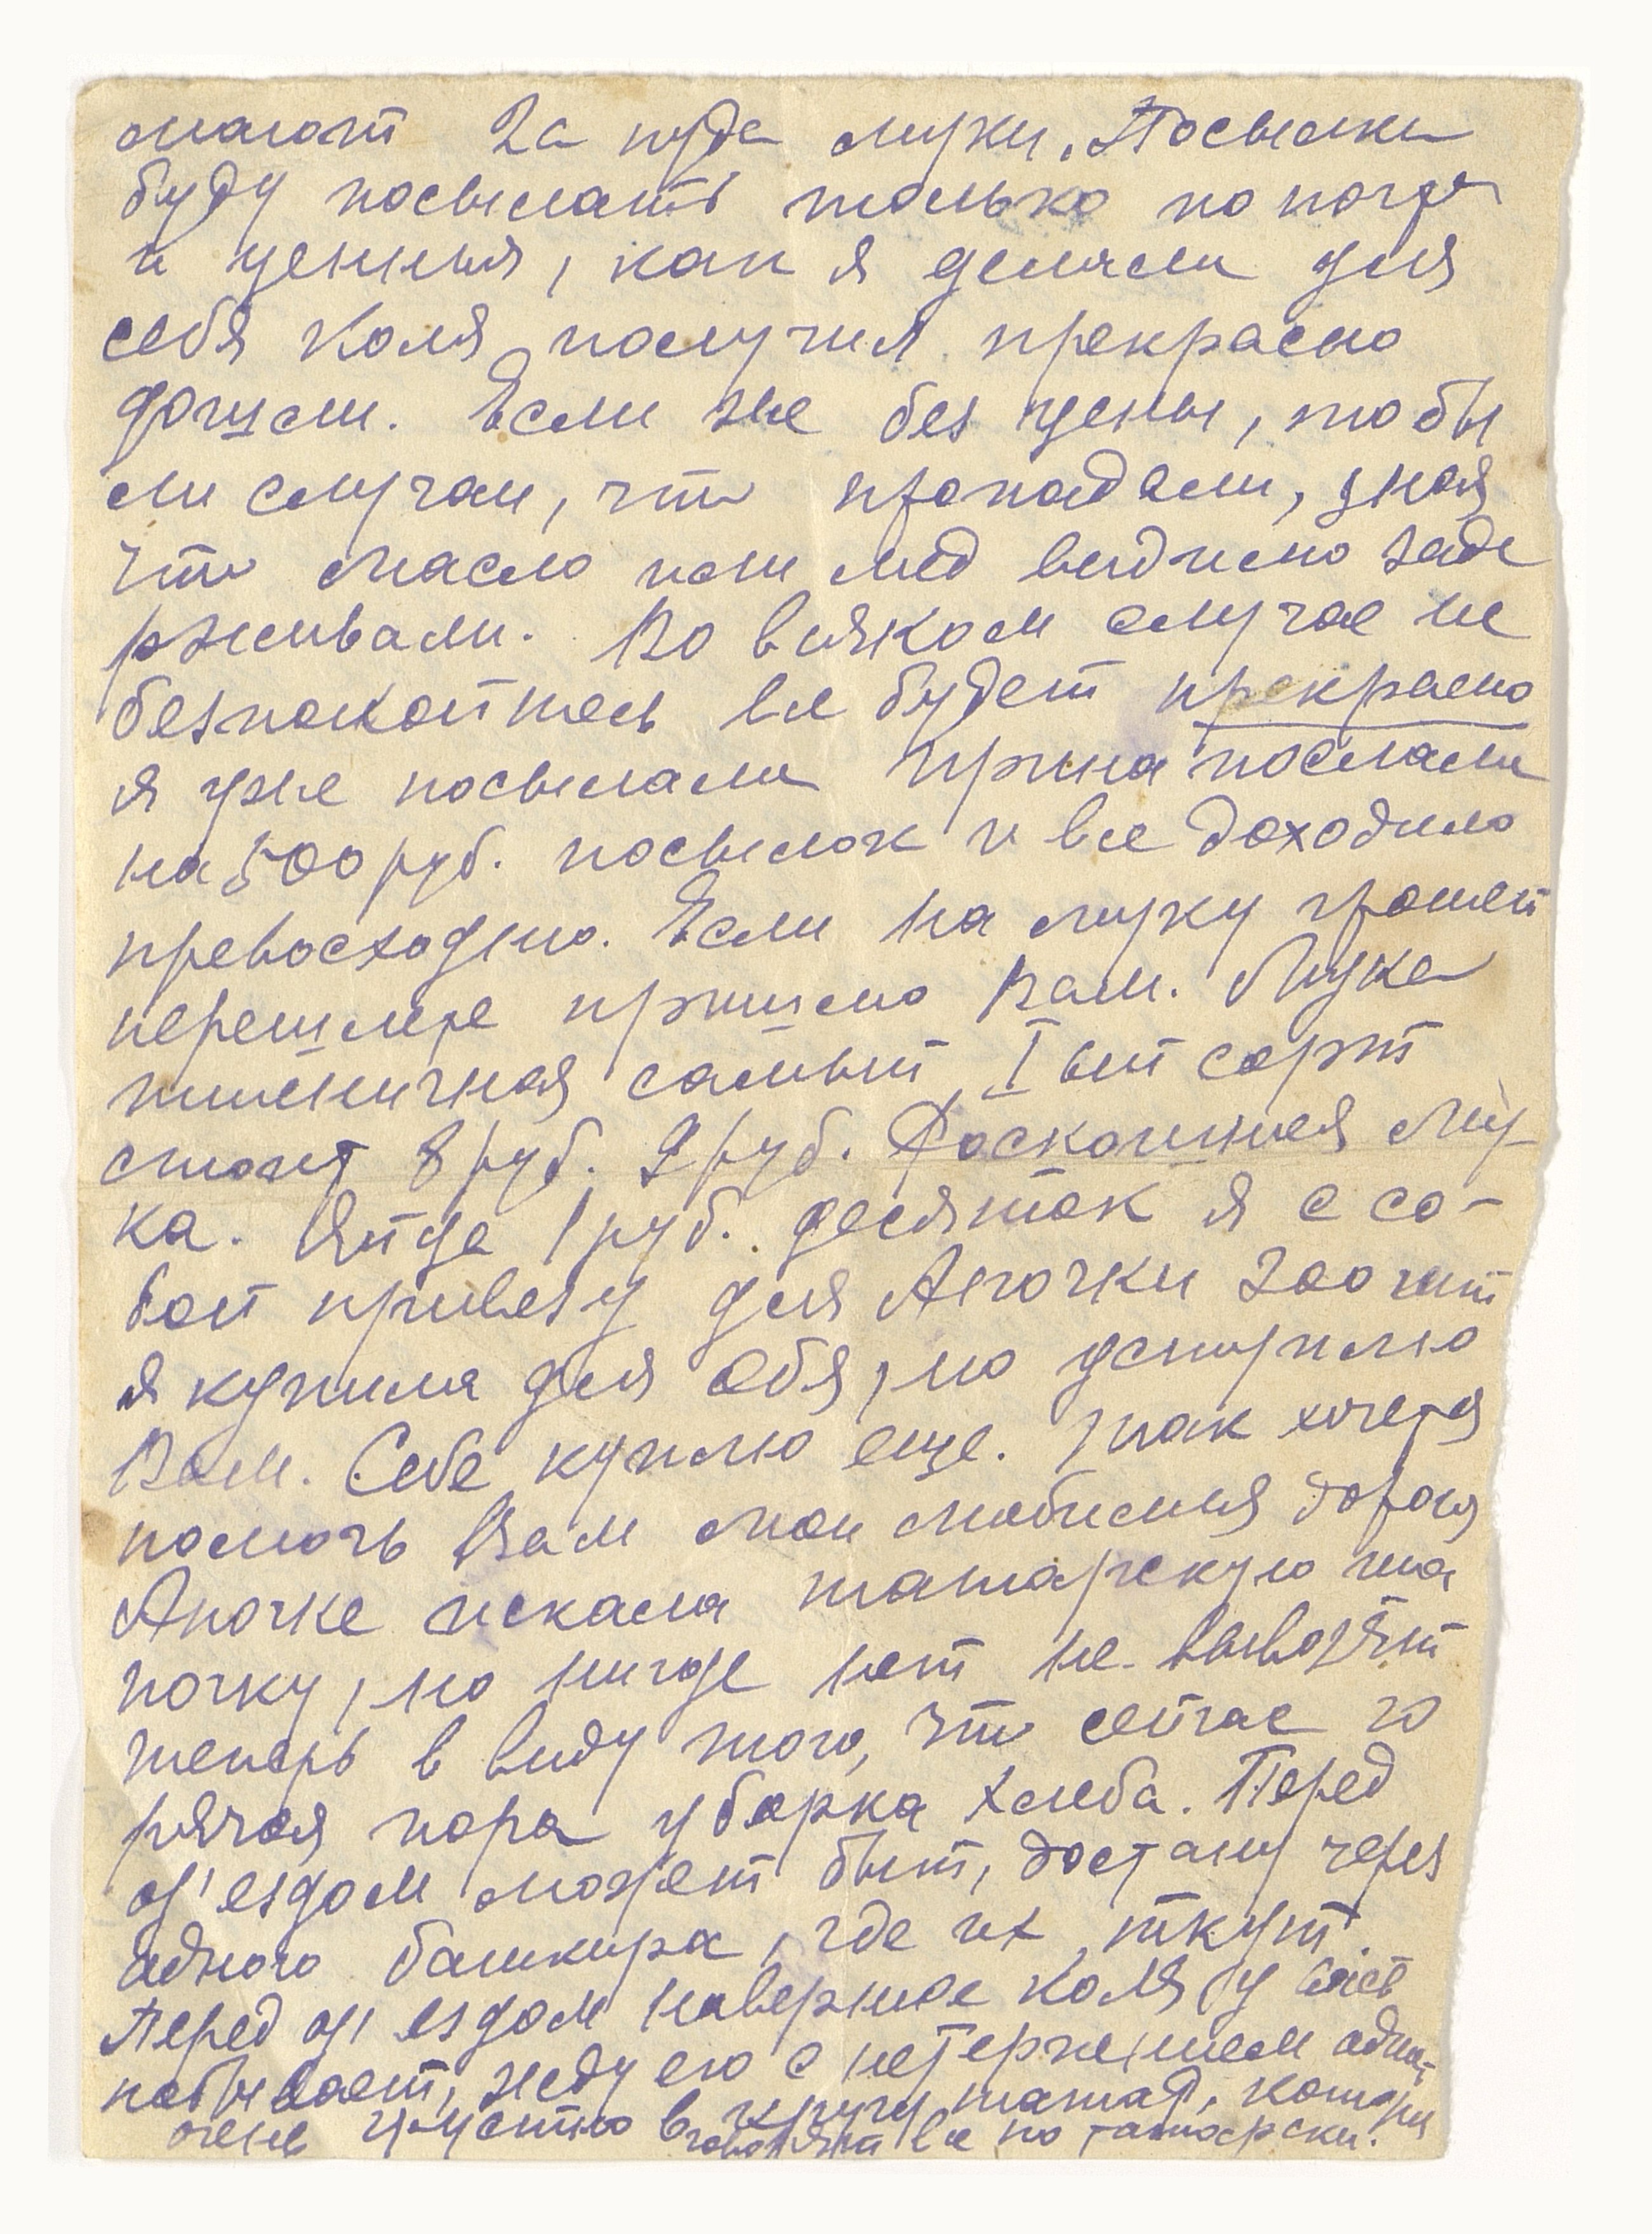 мают 2а пуда муки. Посылки
буду посылать только по почте
и ценныя, как я делала для
себя Коля получил прекрасно
дошли. Если же без цены, то бы
ли случаи, что пропадали, зная
что масло или мед видимо заде
рживали. Во всяком случае не
безпокойтесь все будет прекрасно
я уже посылала Ирина послала
на 500 руб. посылок и все доходило
превосходно. Если на муку грошей
перешлете пришлю Вам. Мука
пшеничная самый I ый сорт
стоит 8 руб. 9 руб. Роскошная му-
ка. Яйца 1 руб. десяток я с со-
бой привезу для Апочки 200 шт
я купила для себя, но уступлю
Вам. Себе куплю еще. так хочется
помочь Вам мои любимыя дорогия
Апочке искала татарскую ша
почку, но нигде нет не вывозят
теперь в виду того, что сейчас го
рячая пора уборка хлеба. Перед
от'ездом может быт, достану через
одного башкира, где их ткут.
Перед от'ездом наверное Коля у вас
побывает, жду его с нетерпением одна
очень грустно в кругу татар, которые
говорят все по татарски.